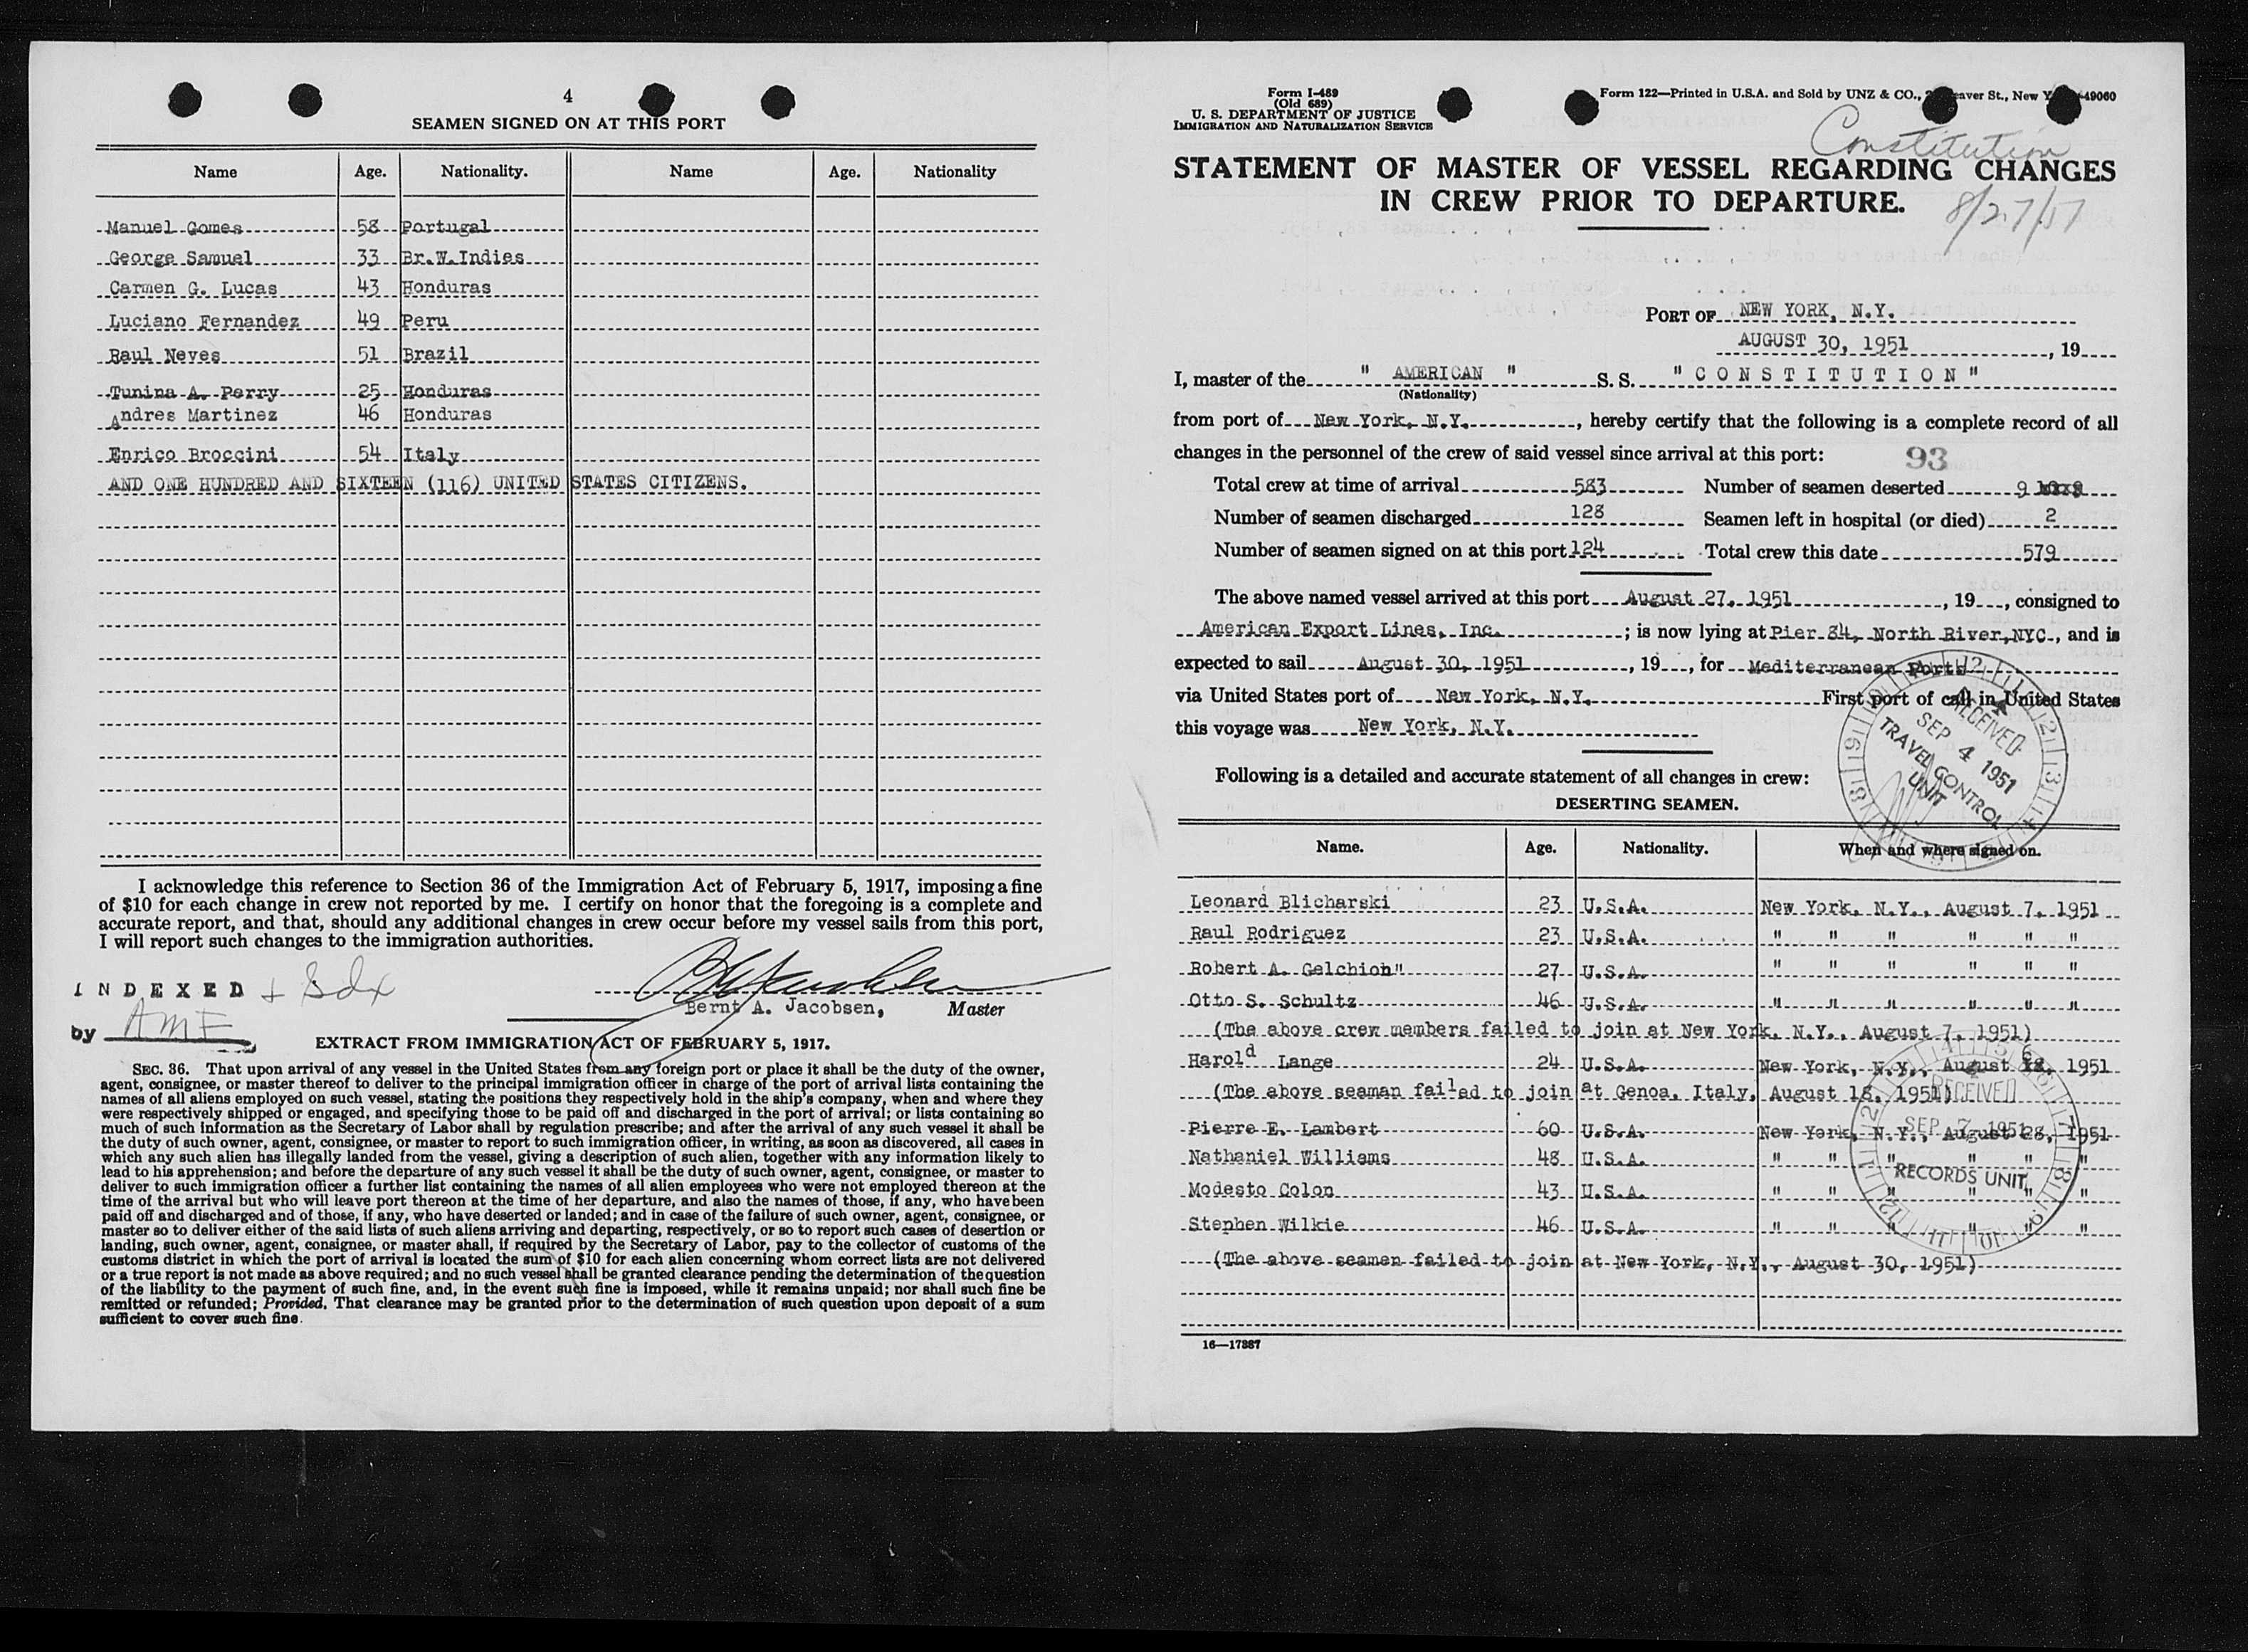 4
SEAMEN SIGNED ON AT THIS PORT
Name Age. Nationality. Name Age. Nationality
Manuel Gomes 58 Portugal
George Samuel 33 Br.W.Indies
Carmen G. Lucas 43 Honduras
Luciano Fernandez 49 Peru
Raul Neves 51 Brazil
Tunina A. Perry 25 Honduras
Andres Martinez 46 Honduras
Enrico Broccini 54 Italy
AND ONE HUNDRED AND SIXTEEN (116) UNITED STATES CITIZENS.
I acknowledge this reference to Section 36 of the Immigration Act of February 5, 1917, imposing a fine
of $10 for each change in crew not reported by me. I certify on honor that the foregoing is a complete and
accurate report, and that, should any additional changes in crew occur before my vessel sails from this port,
I will report such changes to the immigration authorities.
INDEXED
by AMF
Bernt A. Jacobsen, Master
EXTRACT FROM IMMIGRATION ACT OF FEBRUARY 5, 1917.
SEC. 36. That upon arrival of any vessel in the United States from any foreign port or place it shall be the duty of the owner,
agent, consignee, or master thereof to deliver to the principal immigration officer in charge of the port of arrival lists containing the
names of all aliens employed on such vessel, stating the positions they respectively hold in the ship's company, when and where they
were respectively shipped or engaged, and specifying those to be paid off and discharged in the port of arrival; or lists containing so
much of such information as the Secretary of Labor shall by regulation prescribe; and after the arrival of any such vessel it shall be
the duty of such owner, agent, consignee, or master to report to such immigration officer, in writing, as soon as discovered, all cases in
which any such alien has illegally landed from the vessel, giving a description of such alien, together with any information likely to
lead to his apprehension; and before the departure of any such vessel it shall be the duty of such owner, agent, consignee, or master to
deliver to such immigration officer a further list containing the names of all alien employees who were not employed thereon at the
time of the arrival but who will leave port thereon at the time of her departure, and also the names of those, if any, who have been
paid off and discharged and of those, if any, who have deserted or landed; and in case of the failure of such owner, agent, consignee, or
master so to deliver either of the said lists of such aliens arriving and departing, respectively, or so to report such cases of desertion or
landing, such owner, agent, consignee, or master shall, if required by the Secretary of Labor, pay to the collector of customs of the
customs district in which the port of arrival is located the sum of $10 for each alien concerning whom correct lists are not delivered
or a true report is not made as above required; and no such vessel shall be granted clearance pending the determination of the question
of the liability to the payment of such fine, and, in the event such fine is imposed, while it remains unpaid; nor shall such fine be
remitted or refunded; Provided, That clearance may be granted prior to the determination of such question upon deposit of a sum
sufficient to cover such fine.
Form I-489
(Old 689)
U. S. DEPARTMENT OF JUSTICE
IMMIGRATION AND NATURALIZATION SERVICE
Form 122—Printed in U.S.A. and Sold by UNZ & CO., St., New 49060
Constitution
STATEMENT OF MASTER OF VESSEL REGARDING CHANGES
IN CREW PRIOR TO DEPARTURE.
8/27/51
PORT OF NEW YORK, N.Y.
AUGUST 30, 1951, 19
I, master of the " AMERICAN " S. S. "CONSTITUTION"
(Nationality)
from port of New York, N.Y., hereby certify that the following is a complete record of all
changes in the personnel of the crew of said vessel since arrival at this port: 93
Total crew at time of arrival 583 Number of seamen deserted 9
Number of seamen discharged 128 Seamen left in hospital (or died) 2
Number of seamen signed on at this port 124 Total crew this date 579
The above named vessel arrived at this port August 27, 1951, 19, consigned to
American Export Lines, Inc.; is now lying at Pier 84, North River, NYC., and is
expected to sail August 30, 1951, 19, for Mediterranean Ports
via United States port of New York, N.Y. First port of call in United States
this voyage was New York, N.Y.
RECEIVED
SEP 4 1951
TRAVEL CONTROL
UNIT
Following is a detailed and accurate statement of all changes in crew:
DESERTING SEAMEN.
Name. Age. Nationality. When and where signed on.
Leonard Blicharski 23 U.S.A. New York, N.Y., August 7, 1951
Raul Rodriguez 23 U.S.A. " " " " " "
Robert A. Gelchion" 27 U.S.A. " " " " " "
Otto S. Schultz 46 U.S.A. " " " " " "
(The above crew members failed to join at New York, N.Y., August 7, 1951)
Harold Lange 24 U.S.A. New York, N.Y., August 6, 1951
(The above seaman failed to join at Genoa, Italy, August 18, 1951)
Pierre E. Lambert 60 U.S.A. New York, N.Y., August 28, 1951
Nathaniel Williams 48 U.S.A. " " " " " "
Modesto Colon 43 U.S.A. " " " " " "
Stephen Wilkie 46 U.S.A. " " " " " "
(The above seamen failed to join at New York, N.Y., August 30, 1951)
RECEIVED
SEP 7 1951
RECORDS UNIT
16—17887